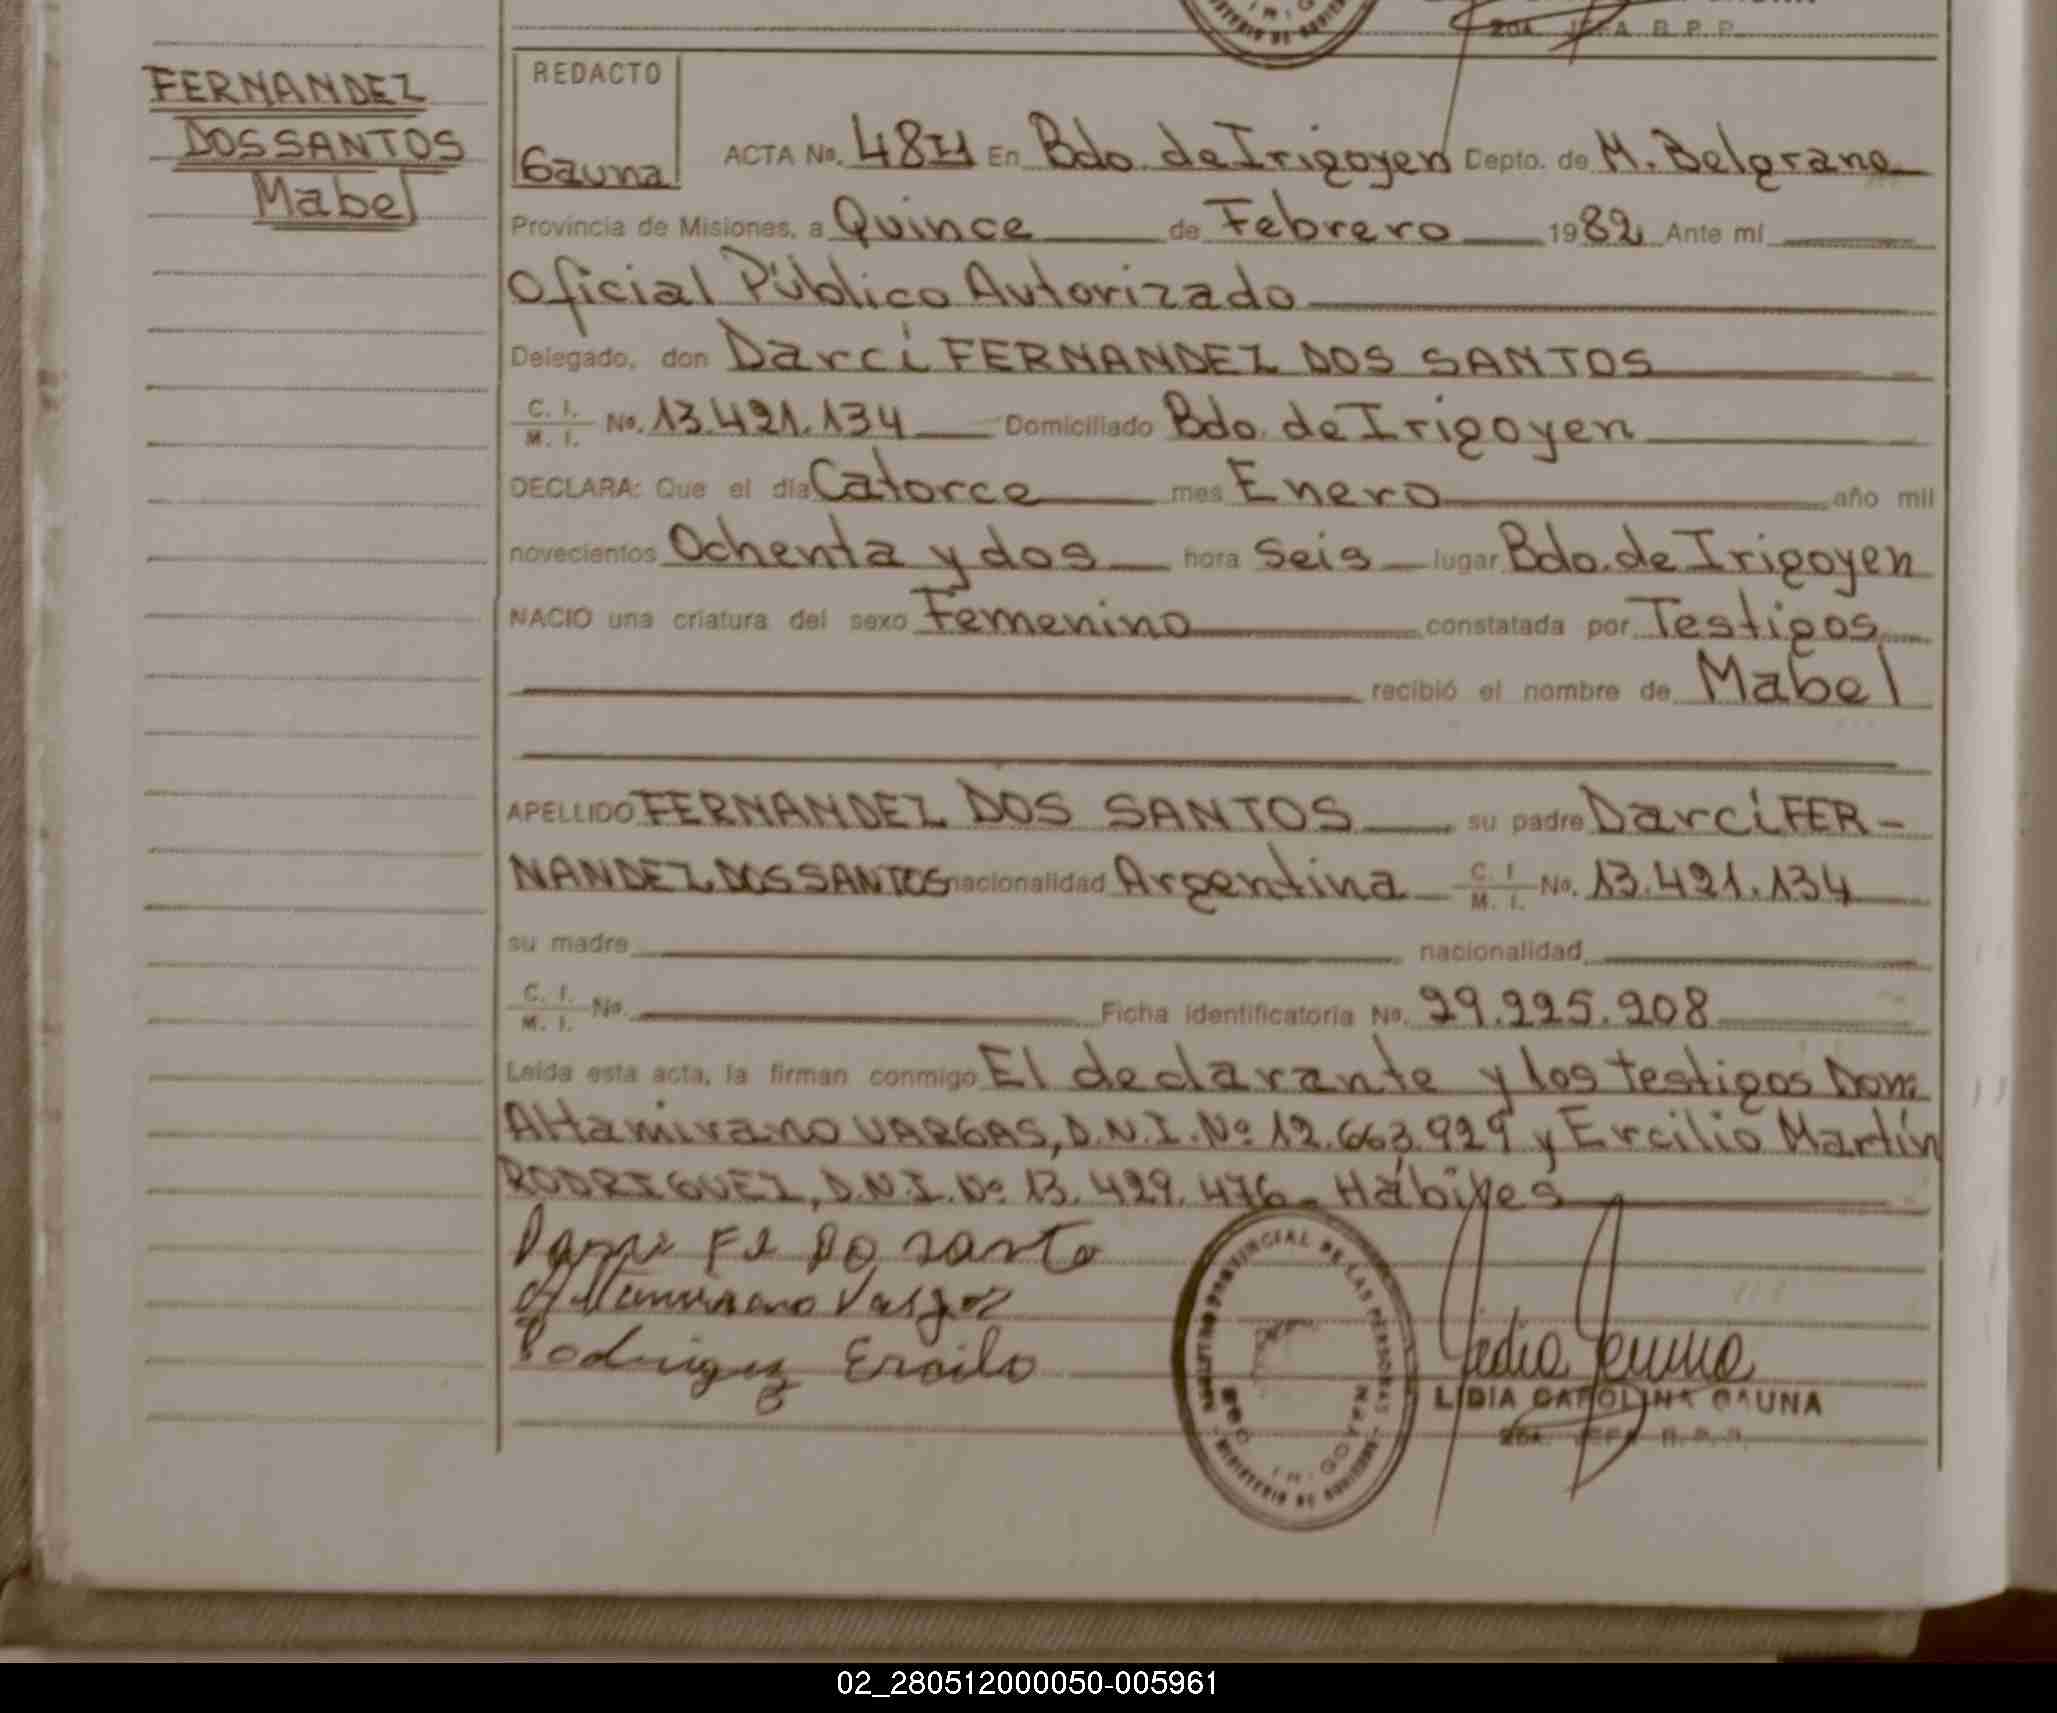 2da. JEFA R. P. P.
FERNANDEZ
DOS SANTOS
Mabel
REDACTO
Gauna
ACTA No. En Bdo. de Irigoyen Depto. de M. Belgrano
Provincia de Misiones, a Quince de Febrero 1982 Ante mí
Oficial Público Autorizado
Delegado, don Darci FERNANDEZ DOS SANTOS
C. I. M. I. No. 13.421.134 Domiciliado Bdo. de Irigoyen
DECLARA: Que el día Catorce mes Enero año mil
novecientos Ochenta y dos hora Seis lugar Bdo. de Irigoyen
NACIO una criatura del sexo Femenino constatada por Testigos
recibió el nombre de Mabel
APELLIDO FERNANDEZ DOS SANTOS su padre Darci FER-
NANDEZ DOS SANTOS nacionalidad Argentina C. I. M. I. No. 13.421.134
su madre nacionalidad
C. I. M. I. No. Ficha identificatoria No. 29.225.208
Leída esta acta, la firman conmigo El declarante y los testigos Don:
Altamirano VARGAS, D.N.I. Nº 12.663.929 y Ercilio Martín
RODRIGUEZ, D.N.I. Nº 13.429.476 - Hábiles
Darci Fz Do Santo
Altamirano Vargas
Rodriguez Ercilo
PROVINCIAL DE LAS PERSONAS
MINISTERIO DE GOBIERNO
LIDIA CAROLINA GAUNA
2da. JEFA R. P. P.
02_280512000050-005961